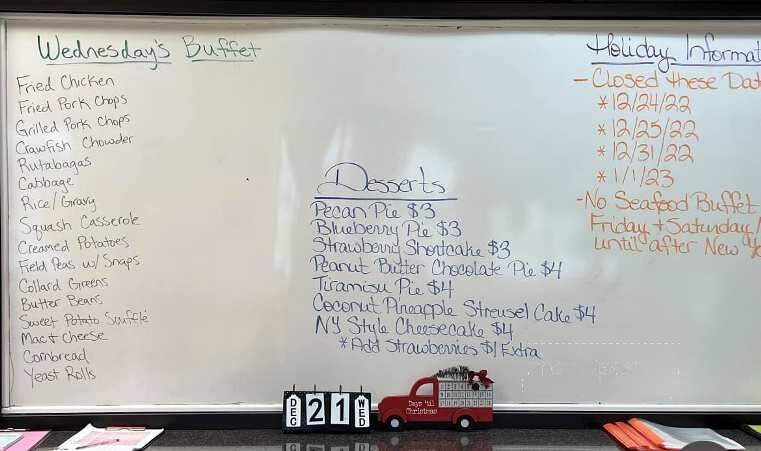 Wednesday's Buffet
Fried Chicken
Fried Pork Chops
Grilled Pork Chops
Crawfish Chowder
Rutabagas
Cabbage
Rice/Gravy
Squash Casserole
Creamed Potatoes
Field Peas w/ Snaps
Collard Greens
Butter Beans
Sweet Potato Soufflé
Mac & Cheese
Cornbread
Yeast Rolls
Desserts
Pecan Pie $3
Blueberry Pie $3
Strawberry Shortcake $3
Peanut Butter Chocolate Pie $4
Tiramisu Pie $4
Coconut Pineapple Streusel Cake $4
NY Style Cheesecake $4
* Add Strawberries $1 Extra
Holiday Informat
- Closed these Dat
* 12/24/22
* 12/25/22
* 12/31/22
* 1/1/23
- No Seafood Buffet
Friday + Saturday
until after New
DEC 21 WED
Days 'til
Christmas